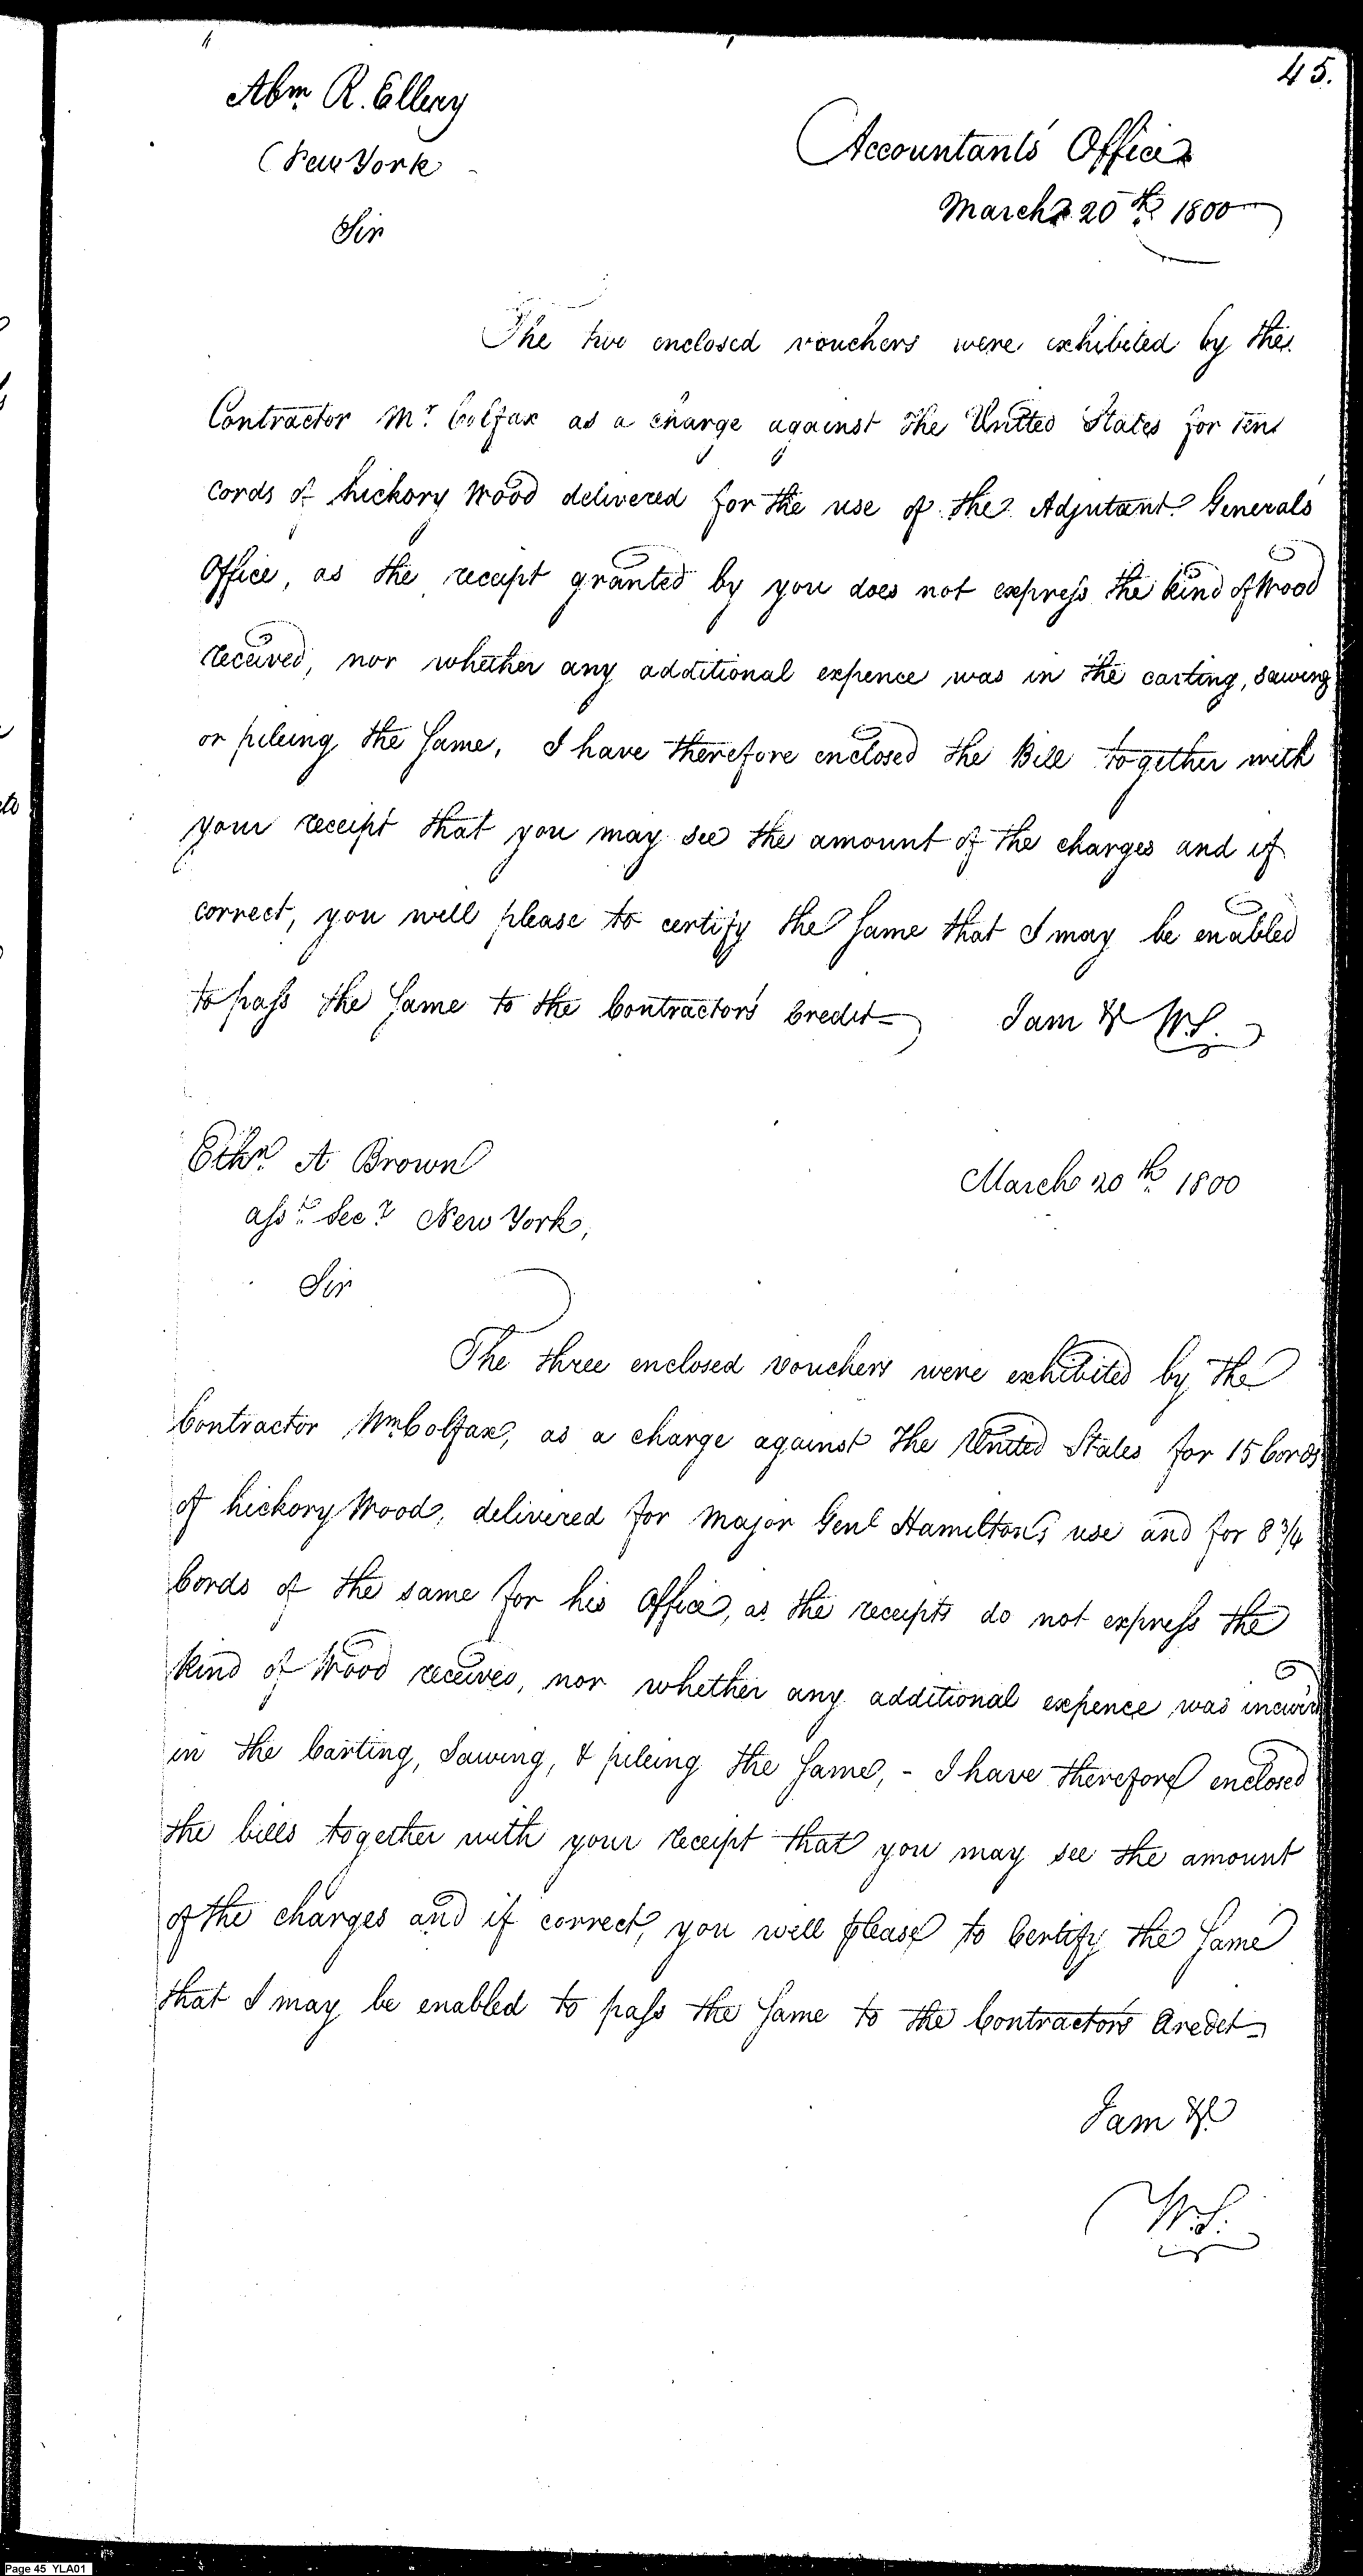 45.
Abm. R. Ellery
New York
Accountants' Office
March 20th 1800
Sir
The two enclosed vouchers were exhibited by the
Contractor Mr. Colfax as a charge against the United States for ten
cords of hickory Wood delivered for the use of the Adjutant Generals
Office, as the receipt granted by you does not express the kind of Wood
received, nor whether any additional expence was in the carting, sawing
or pileing the same, I have therefore enclosed the Bill together with
your receipt that you may see the amount of the charges and if
correct, you will please to certify the same that I may be enabled
to pass the same to the Contractor's Credit I am &c W.S.
Ethn. A Brown
March 20th 1800
asst. Secy. New York,
Sir
The three enclosed vouchers were exhibited by the
Contractor Wm Colfax, as a charge against the United States for 15 Cords
of hickory Wood, delivered for Major Genl Hamilton's use and for 8 3/4
Cords of the same for his Office, as the receipts do not express the
kind of Wood received, nor whether any additional expence was incurr'd
in the Carting, Sawing, & pileing the same, - I have therefore enclosed
the bills together with your receipt that you may see the amount
of the charges and if correct, you will please to Certify the same
that I may be enabled to pass the same to the Contractor's Credit
I am &c
W.S.
Page 45 YLA01